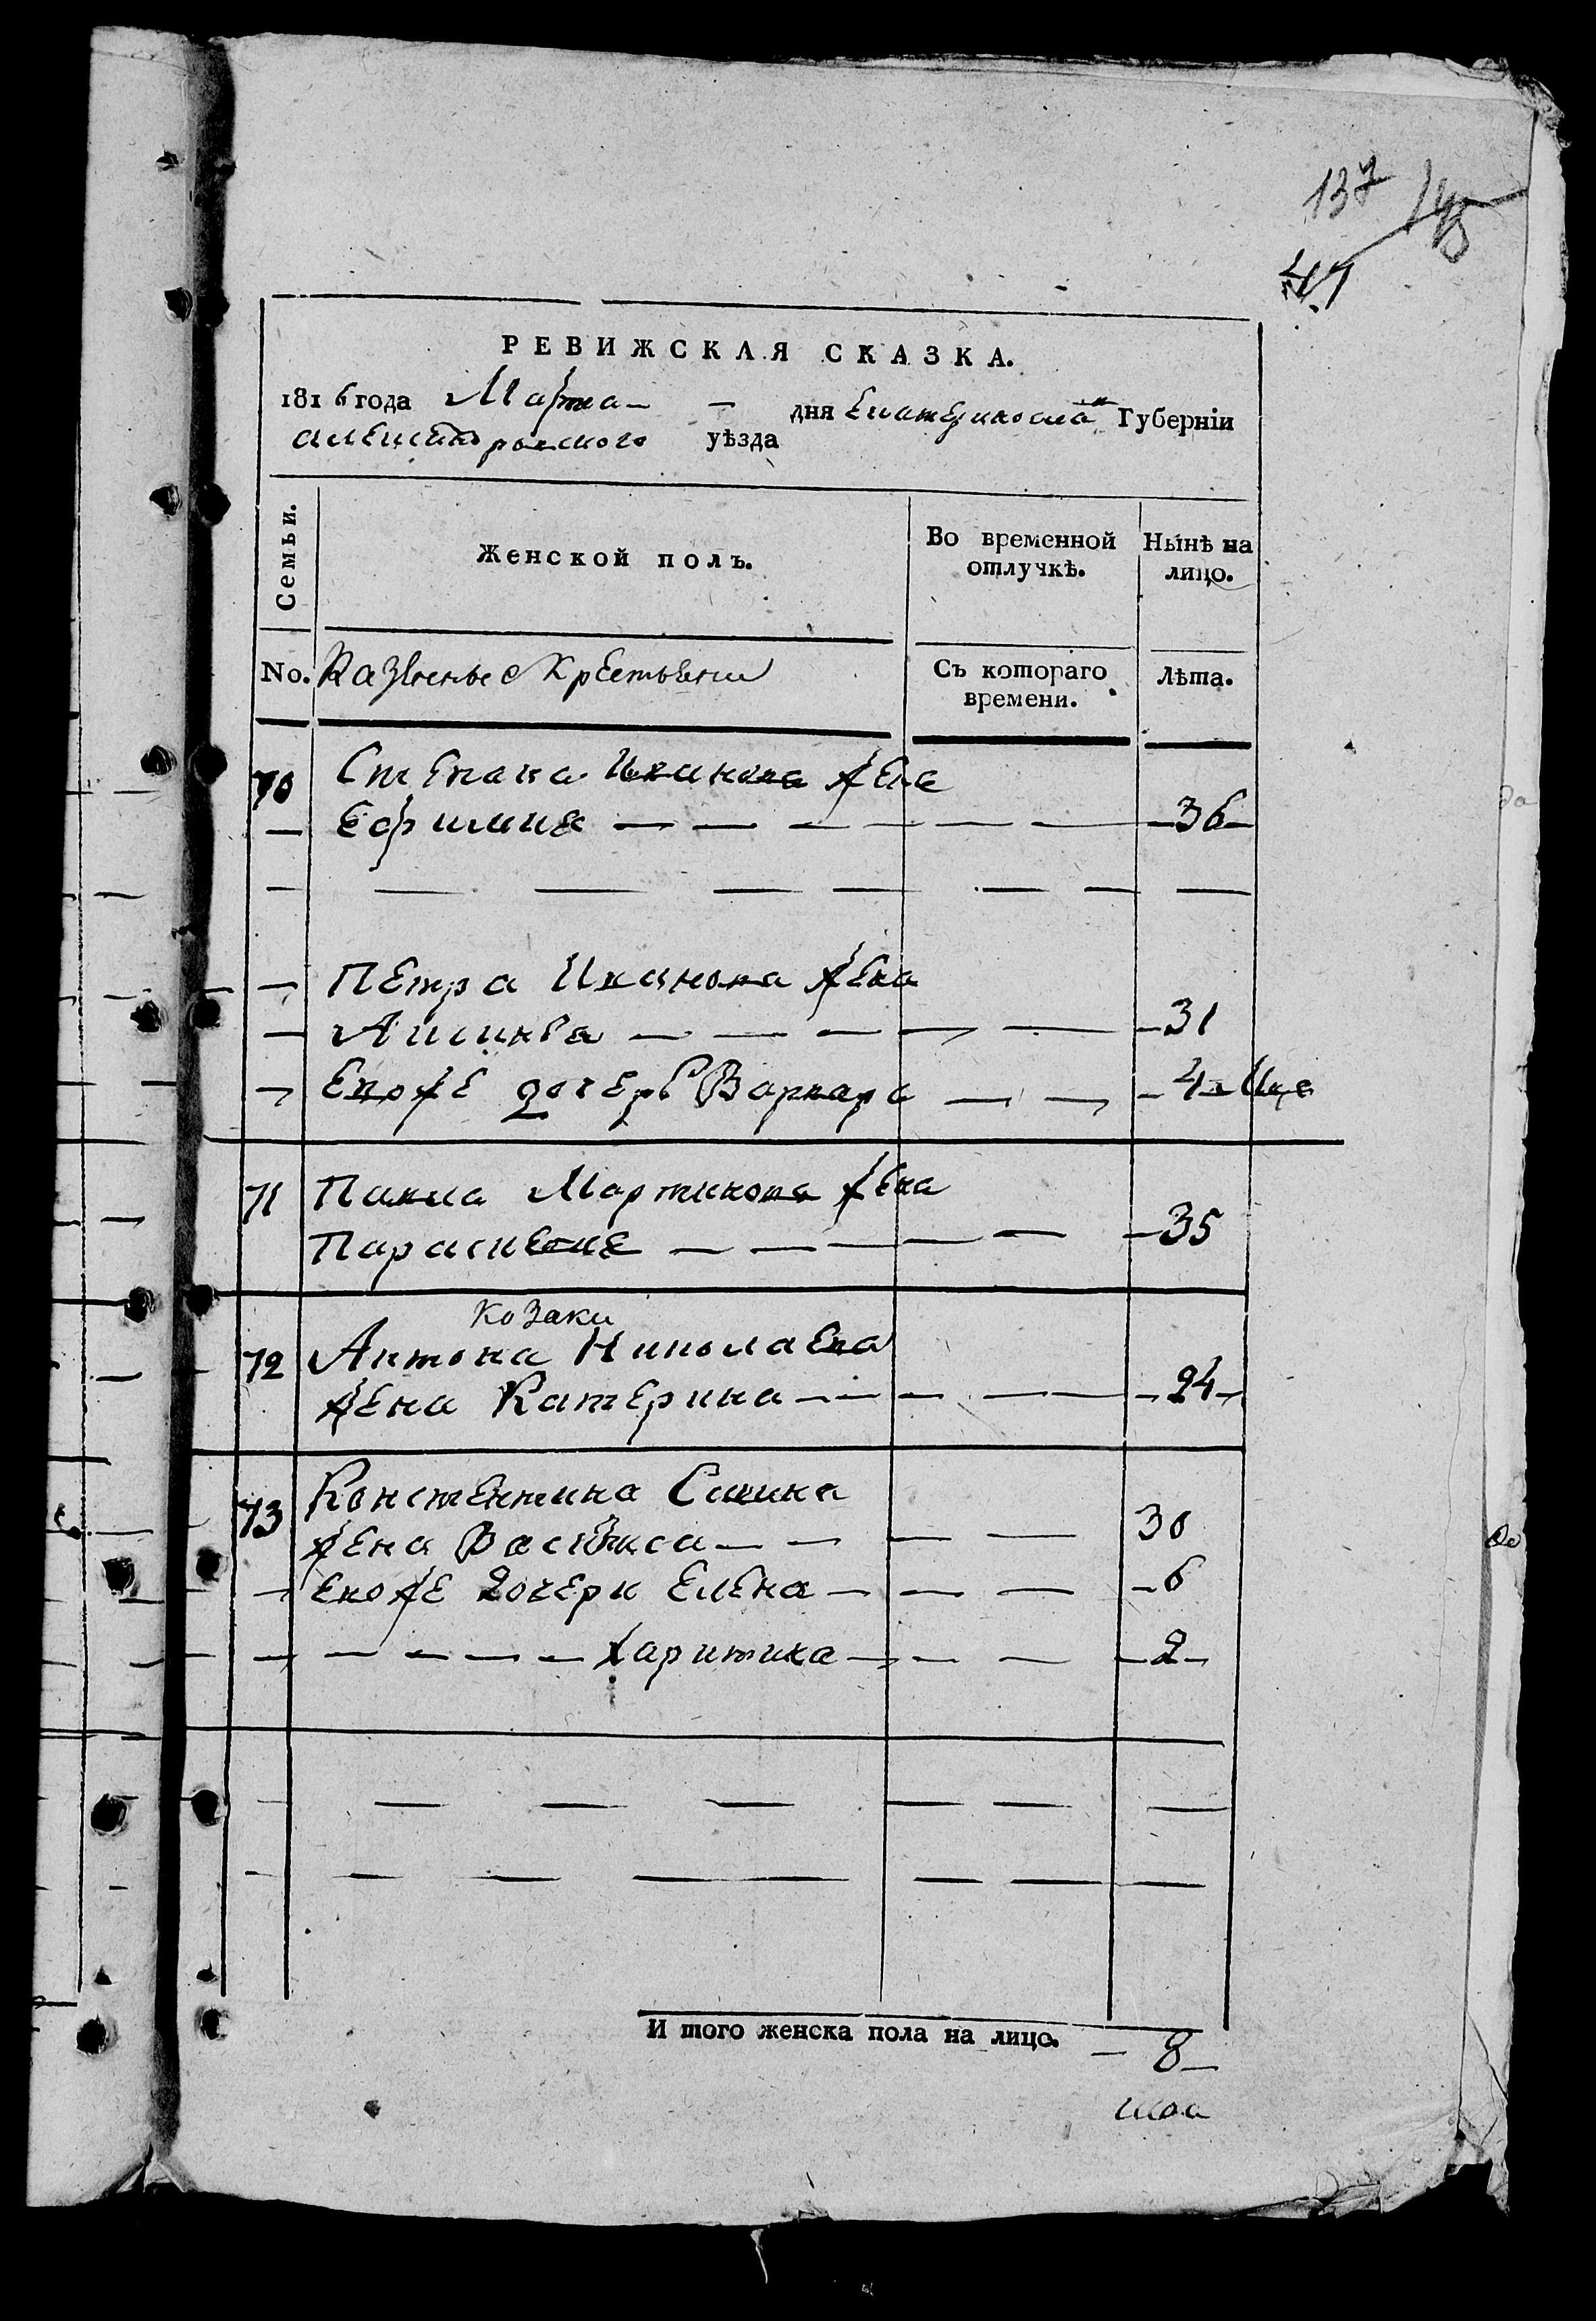 137
РЕВИЖСКАЯ СКАЗКА.
1816 года Марта — дня Екатеринослав Губерніи
александровского уѣзда
Семьи.
Женской полъ.
Во временной отлучкѣ.
Нынѣ на лицо.
No. Казенные Крестьяни
Съ котораго времени.
лѣта.
70 Степана Иванова жена
— Ефимия — — — — — — —36—
— Петра Иванова жена
— — — — — — —31
— Евоже дочерь Варвара — — —4—
71 Павла Мартинова жена
Параскевие — — — — — —35
Козаки
72 Антона Николаева
жена Катерина — — — — — —24—
73 Константина Савина
жена Василиса — — — — 30
— Евоже дочери Елена — — — —6
— — — — — — Харитина — — — —2—
И того женска пола на лицо. — 8 —